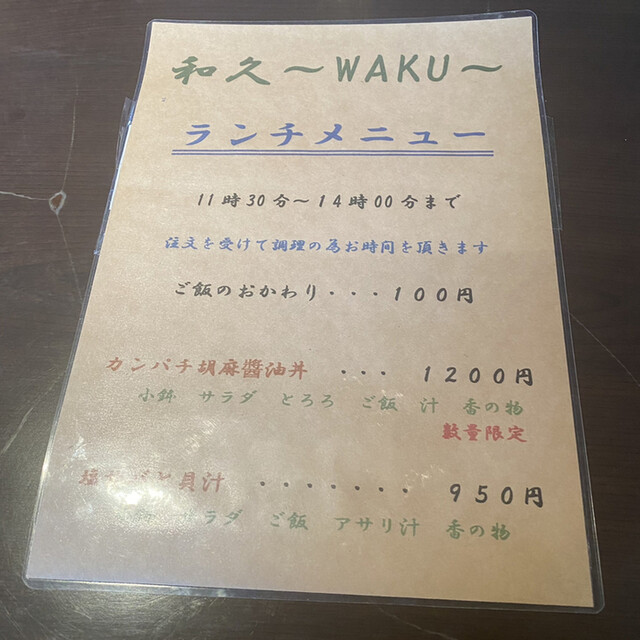 和久～WAKU～
ランチメニュー
11時30分～14時00分まで
注文を受けて調理の為お時間を頂きます
ご飯のおかわり・・・100円
カンパチ胡麻醬油丼 ・・・ 1200円
小鉢 サラダ とろろ ご飯 汁 香の物
数量限定
塩 と貝汁 ・・・・・・・ 950円
ラダ ご飯 アサリ汁 香の物